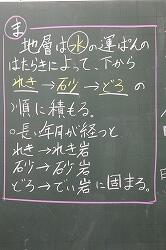 ま
地層は水の運ぱんの
はたらきによって、下から
れき→砂→どろ の
順に積もる。
○長い年月が経つと
れき→れき岩
砂→砂岩
どろ→でい岩に固まる。